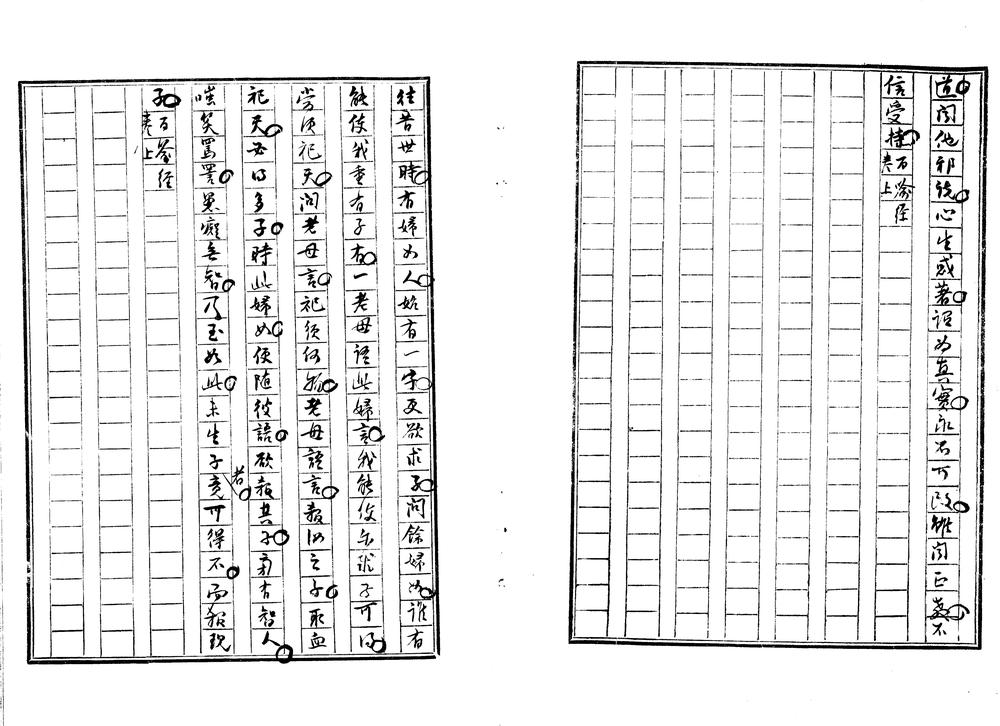 道聞他邪說心生惑著謂為真實永不可改雖聞正義不
信受持百喻經
卷上
往昔世時有婦女人始有一字更欲求子問餘婦女誰有
能使我重有子有一老母語此婦言我能使爾求子可得
當須祀天問老母言祀須何物老母語言殺汝之子取血
祀天必得多子時此婦女便隨彼語欲殺其子旁有智人
嗤笑罵詈愚癡無智乃至如此未生子者竟可得不而殺現
子百喻經
卷上